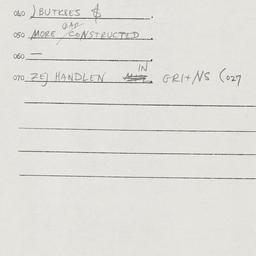 040 ) BUTKSES $
050 MORE GAP CONSTRUCTED
060 —
070 ZEJ HANDLEN IN GRI+NS (027